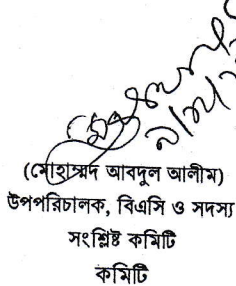 (মোহাম্মদ আবদুল আলীম)
উপপরিচালক, বিএসি ও সদস্য
সংশ্লিষ্ট কমিটি
কমিটি